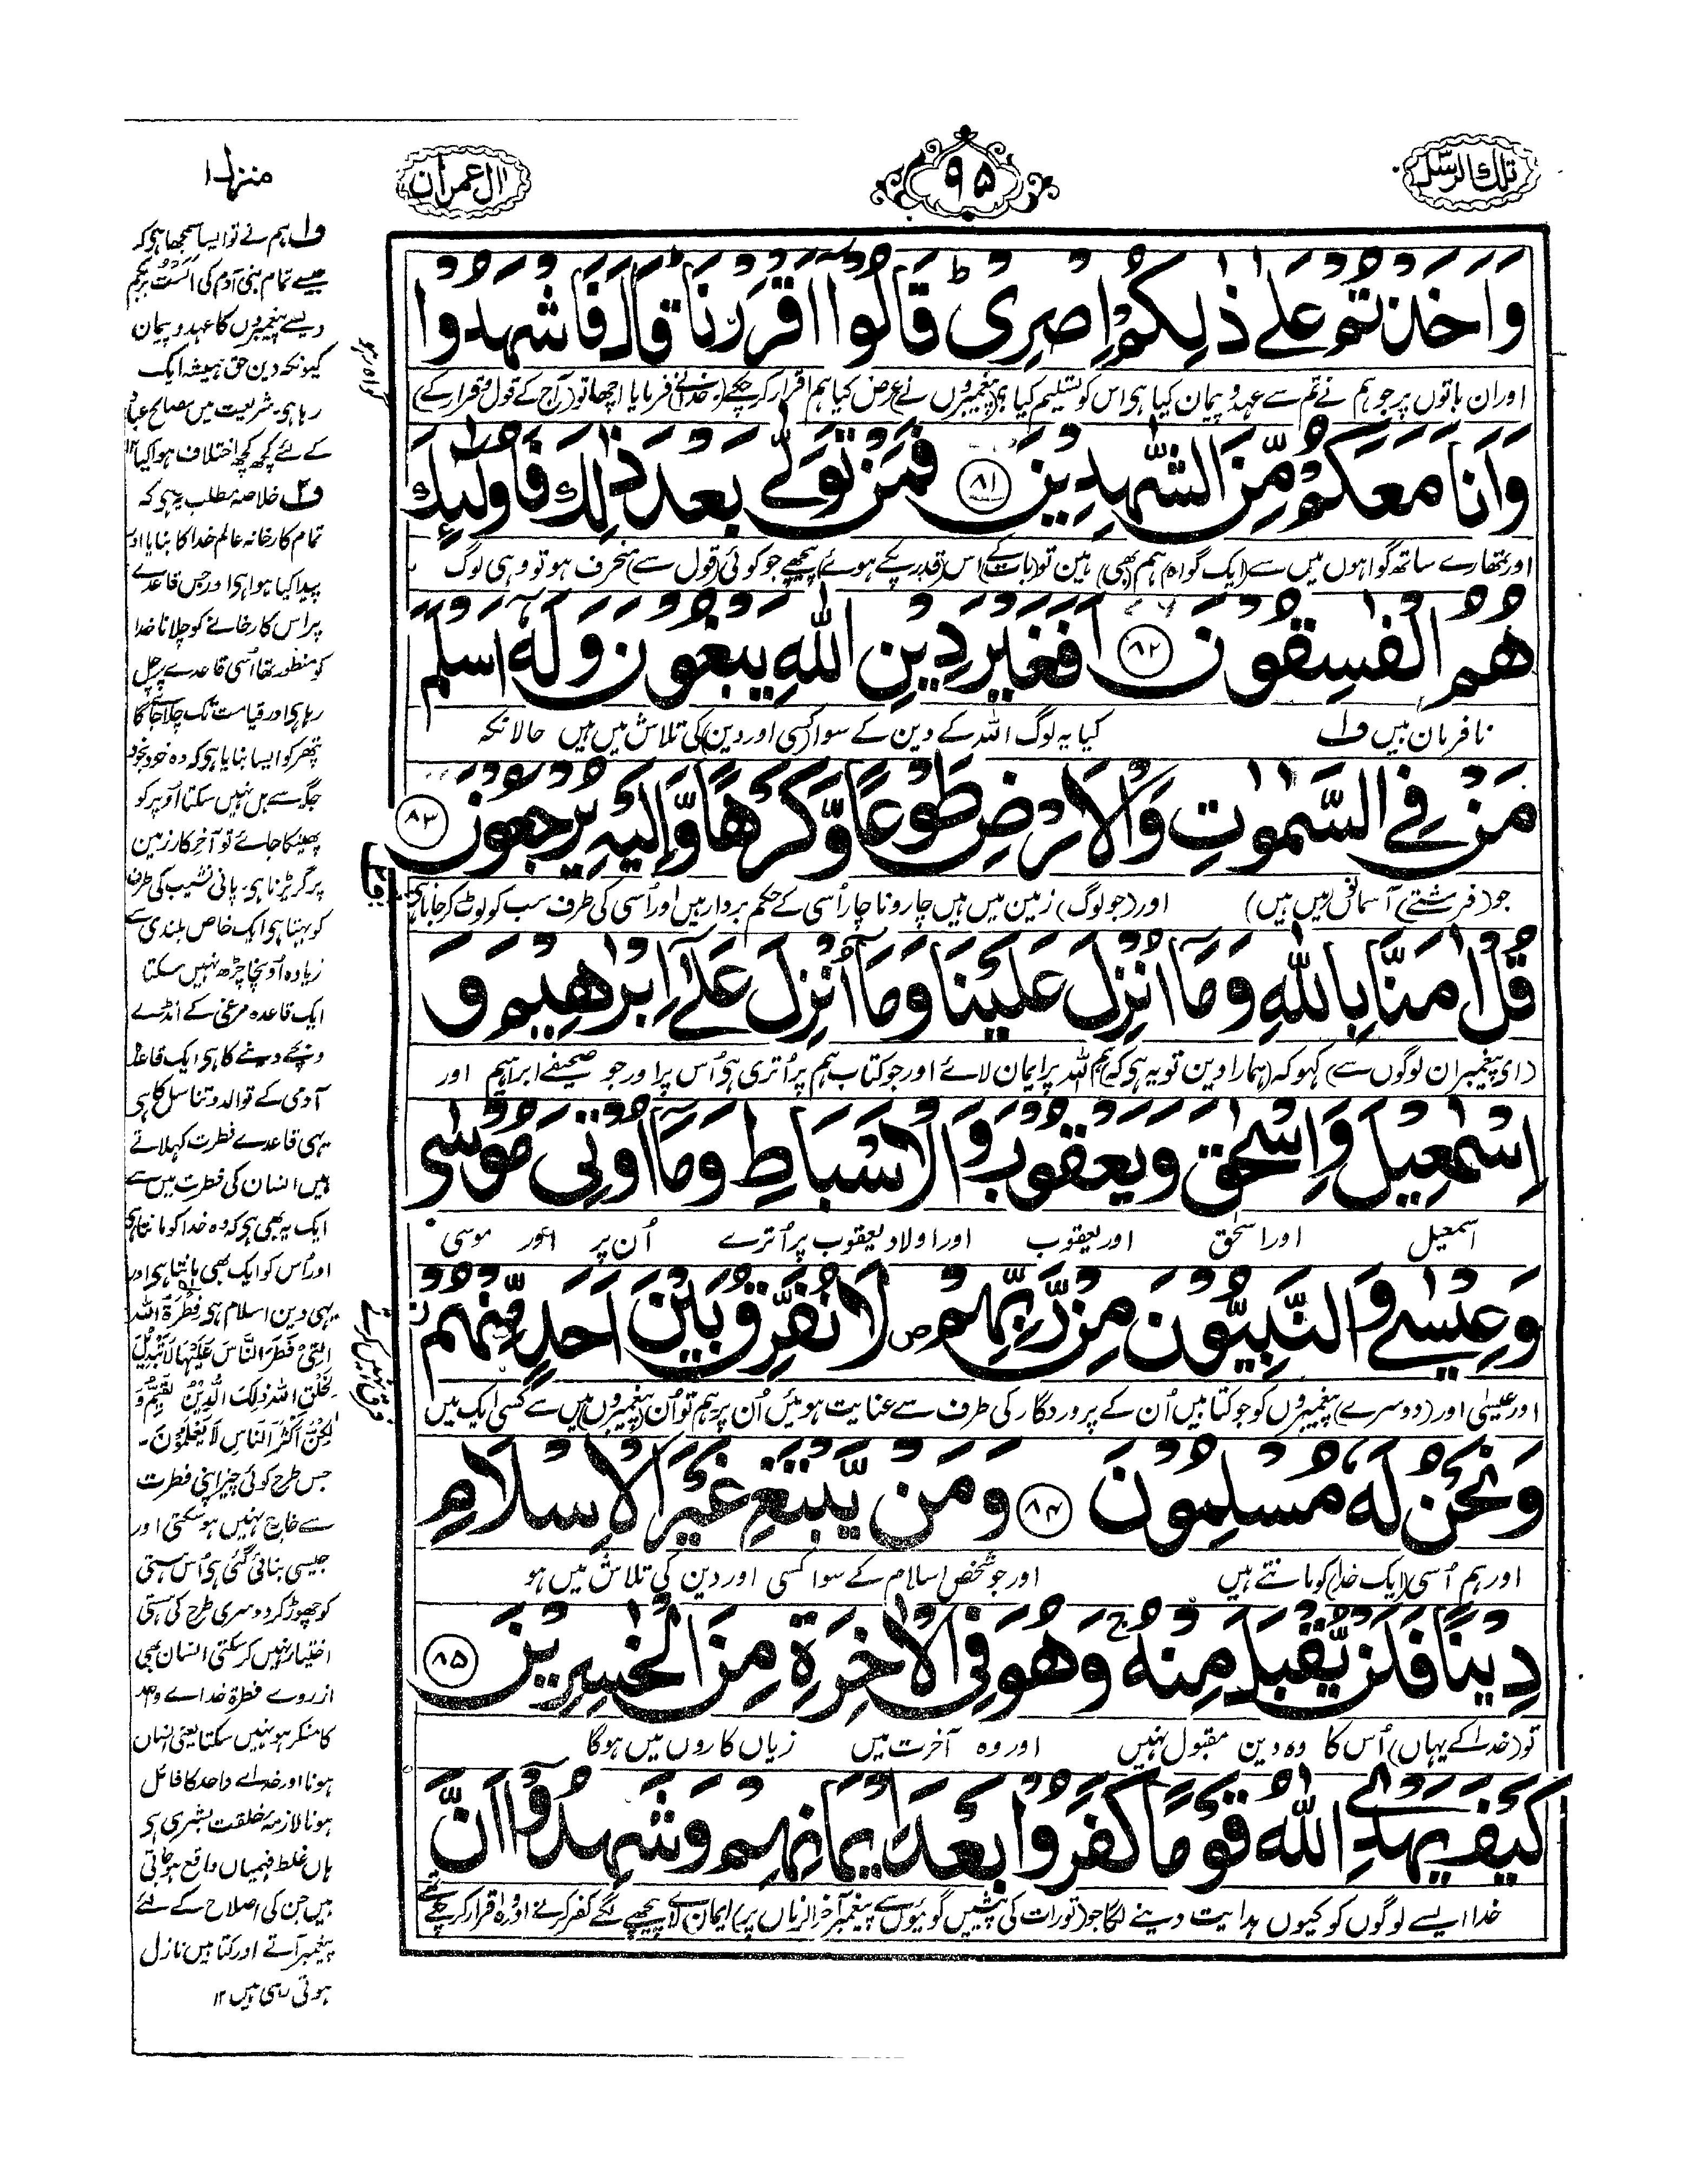 تلك الرسل
۹۵
ال عمران
منزل ۱
وَاَخَذْتُمْ عَلٰی ذٰلِكُمْ اِصْرِیْ ؕ قَالُوْۤا اَقْرَرْنَا ؕ قَالَ فَاشْهَدُوْا
اور ان باتوں پر جو ہم نے تم سے عہد و پیمان کیا ہی اس کو تسلیم کیا؟ (پیغمبروں نے) عرض کیا ہم اقرار کر چکے (۔ خدا نے) فرمایا اچھا تو (آج کے قول و قرار کے)
گواہ رہو
وَاَنَا مَعَكُمْ مِّنَ الشّٰهِدِیْنَ ۸۱ فَمَنْ تَوَلّٰی بَعْدَ ذٰلِكَ فَاُولٰٓئِكَ
اور تمھارے ساتھ گواہوں میں سے (ایک گواہ) ہم (بھی) ہین تو (بات کے) اس (قدر پکے ہوئے) پیچھے جو کوئی (قول سے) منحرف ہو تو وہی لوگ
هُمُ الْفٰسِقُوْنَ ۸۲ اَفَغَیْرَ دِیْنِ اللّٰهِ یَبْغُوْنَ وَلَهٗۤ اَسْلَمَ
نافرمان ہیں ف۱ کیا یہ لوگ اللہ کے دین کے سوا (کسی اور دین) کی تلاش میں ہیں حالانکہ
مَنْ فِی السَّمٰوٰتِ وَالْاَرْضِ طَوْعًا وَّكَرْهًا وَّاِلَیْهِ یُرْجَعُوْنَ ۸۳
جو (فرشتے) آسمانوں میں (ہیں) اور (جو لوگ) زمین میں ہیں چار و ناچار اُسی کے حکم بردار ہیں اور اُسی کی طرف سب کو لوٹ کر جانا ہی
ف۲
قُلْ اٰمَنَّا بِاللّٰهِ وَمَاۤ اُنْزِلَ عَلَیْنَا وَمَاۤ اُنْزِلَ عَلٰۤی اِبْرٰهِیْمَ وَ
(ای پیغمبر ان لوگوں سے) کہو کہ (ہمارا دین تو یہ ہی کہ) ہم اللہ پر ایمان لائے اور جو کتاب ہم پر اُتری ہی اُس پر اور جو صحیفے ابراہیم اور
اِسْمٰعِیْلَ وَاِسْحٰقَ وَیَعْقُوْبَ وَالْاَسْبَاطِ وَمَاۤ اُوْتِیَ مُوْسٰی
اسمعیل اور اسحٰق اور یعقوب اور اولاد یعقوب پر اُترے اُن پر اور موسی
وَعِیْسٰی وَالنَّبِیُّوْنَ مِنْ رَّبِّهِمْ ص لَا نُفَرِّقُ بَیْنَ اَحَدٍ مِّنْهُمْ ز
اور عیسٰی اور (دوسرے) پیغمبروں کو جو کتابیں اُن کے پروردگار کی طرف سے عنایت ہوئیں اُن پر۔ ہم تو اُن (پیغمبروں) میں سے کسی ایک میں
فرق نہیں کرتے
وَنَحْنُ لَهٗ مُسْلِمُوْنَ ۸۴ وَمَنْ یَّبْتَغِ غَیْرَ الْاِسْلَامِ
اور ہم اُسی (ایک خدا) کو مانتے ہیں اور جو شخص اسلام کے سوا کسی اور دین کی تلاش میں ہو
دِیْنًا فَلَنْ یُّقْبَلَ مِنْهُ ج وَهُوَ فِی الْاٰخِرَةِ مِنَ الْخٰسِرِیْنَ ۸۵
تو (خدا کے یہاں) اُس کا وہ دین مقبول نہیں اور وہ آخرت میں زیاں کاروں میں ہوگا
كَیْفَ یَهْدِی اللّٰهُ قَوْمًا كَفَرُوْا بَعْدَ اِیْمَانِهِمْ وَشَهِدُوْۤا اَنَّ
خدا ایسے لوگوں کو کیوں ہدایت دینے لگا جو (تورات کی پیشین گوئیوں سے پیغمبر آخر الزماں پر) ایمان لائے پیچھے لگے کفر کرنے اور وہ اقرار کر چکے تھے
ف۱ ہم نے تو ایسا سمجھا ہی کہ
جیسے تمام بنی آدم کی الست بربکم
ویسے پیغمبروں کا عہد و پیمان
کیونکہ دین حق ہمیشہ ایک
رہا ہی۔ شریعت میں مصالح عباد
کے لئے کچھ کچھ اختلاف ہوا کیا ۱۲
ف۲ خلاصۂ مطلب یہ ہی کہ
تمام کارخانہ عالم خدا کا بنایا اور
پیدا کیا ہوا ہی اور جس قاعدے
پر اس کارخانے کو چلانا خدا
کو منظور تھا اُسی قاعدے پر چل
رہا ہی اور قیامت تک چلا جائے گا
پتھر کو ایسا بنایا ہی کہ وہ خود بخود
جگہ سے ہل نہیں سکتا اُوپر کو
پھینکا جائے تو آخر کار زمین
پر گر پڑتا ہی۔ پانی نشیب کی طرف
کو بہتا ہی ایک خاص بلندی سے
زیادہ اُونچا چڑھ نہیں سکتا
ایک قاعدہ مرغی کے انڈے
و بچے دینے کا ہی ایک قاعدہ
آدمی کے توالد و تناسل کا ہی
یہی قاعدے فطرت کہلاتے
ہیں انسان کی فطرت میں سے
ایک یہ بھی ہی کہ وہ خدا کو مانتا ہی
اور اُس کو ایک بھی مانتا ہی اور
یہی دین اسلام ہی فِطْرَةَ اللّٰهِ
الَّتِیْ فَطَرَ النَّاسَ عَلَیْهَا لَا تَبْدِیْلَ
لِخَلْقِ اللّٰهِ ذٰلِكَ الدِّیْنُ الْقَیِّمُ وَ
لٰكِنَّ اَكْثَرَ النَّاسِ لَا یَعْلَمُوْنَ۔
جس طرح کوئی چیز اپنی فطرت
سے خارج نہیں ہو سکتی اور
جیسی بنائی گئی ہی اُس ہستی
کو چھوڑ کر دوسری طرح کی ہستی
اختیار نہیں کر سکتی انسان بھی
از روے فطرۃ خداے واحد
کا منکر ہو نہیں سکتا یعنی انسان
ہونا اور خداے واحد کا قائل
ہونا لازمۂ خلقت بشری ہی
ہاں غلط فہمیاں واقع ہو جاتی
ہیں جن کی اصلاح کے لئے
پیغمبر آتے اور کتابیں نازل
ہوتی رہی ہیں ۱۲